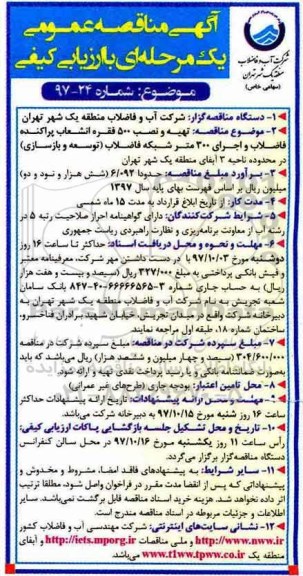 آگهی مناقصه عمومی
یک مرحله‌ای با ارزیابی کیفی
شرکت آب و فاضلاب
منطقه یک شهر تهران
(سهامی خاص)
موضوع: شماره ۲۴-۹۷
۱- دستگاه مناقصه‌گزار: شرکت آب و فاضلاب منطقه یک شهر تهران
۲- موضوع مناقصه: تهیه و نصب ۵۰۰ فقره انشعاب پراکنده
فاضلاب و اجرای ۳۰۰ متر شبکه فاضلاب (توسعه و بازسازی)
در محدوده ناحیه ۳ آبفای منطقه یک شهر تهران
۳- برآورد مبلغ مناقصه: حدودا ۶/۰۹۲ (شش هزار و نود و دو)
میلیون ریال بر اساس فهرست بهای پایه سال ۱۳۹۷
۴- مدت کار: از تاریخ ابلاغ قرارداد به مدت ۱۵ ماه شمسی
۵- شرایط شرکت‌کنندگان: دارای گواهینامه احراز صلاحیت رتبه ۵ در
رشته آب از معاونت برنامه‌ریزی و نظارت راهبردی ریاست جمهوری
۶- مهلت و نحوه و محل دریافت اسناد: حداکثر تا ساعت ۱۶ روز
دوشنبه مورخ ۹۷/۱۰/۰۳ با در دست داشتن مهر شرکت، معرفی‌نامه معتبر
و فیش بانکی پرداختی به مبلغ ۳۲۷/۰۰۰ ریال (سیصد و بیست و هفت هزار
ریال) به حساب جاری شماره ۳-۴۰۶۶۶۶۵۶۵-۸۴۷ بانک سامان
شعبه تجریش به نام شرکت آب و فاضلاب منطقه یک شهر تهران به
دبیرخانه شرکت واقع در میدان تجریش، خیابان شهید برادران فناخسرو،
ساختمان شماره ۱۸، طبقه اول مراجعه نمایند.
۷- مبلغ سپرده شرکت در مناقصه: مبلغ سپرده شرکت در مناقصه
۳۰۴/۶۰۰/۰۰۰ (سیصد و چهار میلیون و ششصد هزار) ریال می‌باشد که باید
به‌صورت ضمانتنامه بانکی و یا رسید پرداخت نقدی تهیه و ارائه شود.
۸- محل تامین اعتبار: بودجه جاری (طرح‌های غیر عمرانی)
۹- مهلت و محل ارائه پیشنهادات: تاریخ ارائه پیشنهادات حداکثر
تا ساعت ۱۶ روز شنبه مورخ ۹۷/۱۰/۱۵ به دبیرخانه شرکت می‌باشد.
۱۰- تاریخ و محل تشکیل جلسه بازگشایی پاکات ارزیابی کیفی:
رأس ساعت ۱۱ روز یکشنبه مورخ ۹۷/۱۰/۱۶ در محل سالن کنفرانس
دستگاه مناقصه‌گزار برگزار می‌گردد.
۱۱- سایر شرایط: به پیشنهادهای فاقد امضا، مشروط و مخدوش و
پیشنهاداتی که پس از انقضا مدت مقرر در فراخوان واصل شود، مطلقا ترتیب
اثر داده نخواهد شد. هزینه خرید اسناد مناقصه قابل برگشت نمی‌باشد. سایر
اطلاعات و جزئیات مربوطه در اسناد مناقصه مندرج است.
۱۲- نشانی سایت‌های اینترنتی: شرکت مهندسی آب و فاضلاب کشور
http://www.nww.ir و ملی مناقصات http://iets.mporg.ir و آبفای
منطقه یک www.t1ww.tpww.co.ir می‌باشد.